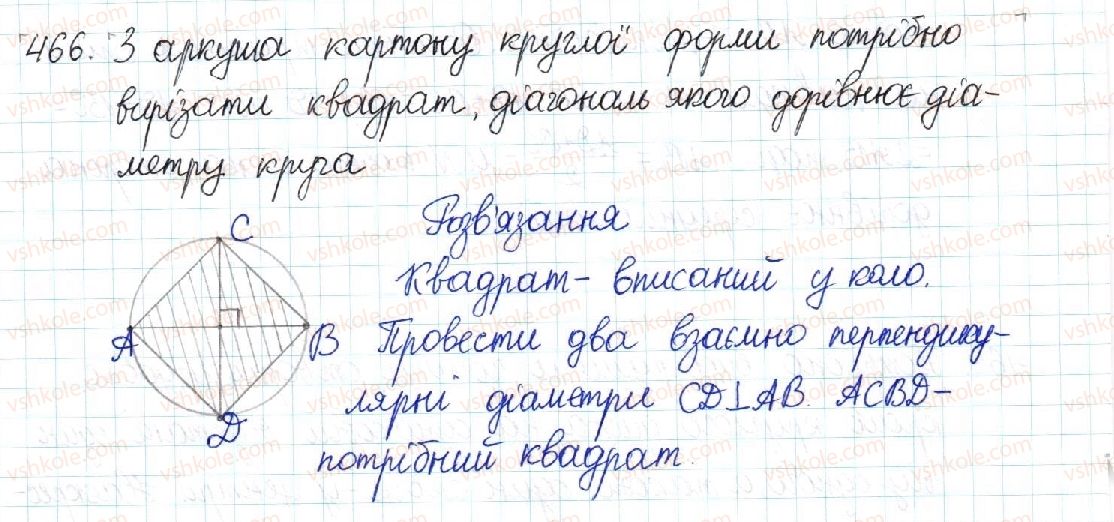 466. З аркуша картону круглої форми потрібно
вирізати квадрат, діагональ якого дорівнює діа-
метру круга
Розв'язання
Квадрат - вписаний у коло.
Провести два взаємно перпендику-
лярні діаметри CD⊥AB. ACBD-
потрібний квадрат.
C
A
B
D
vshkole.com